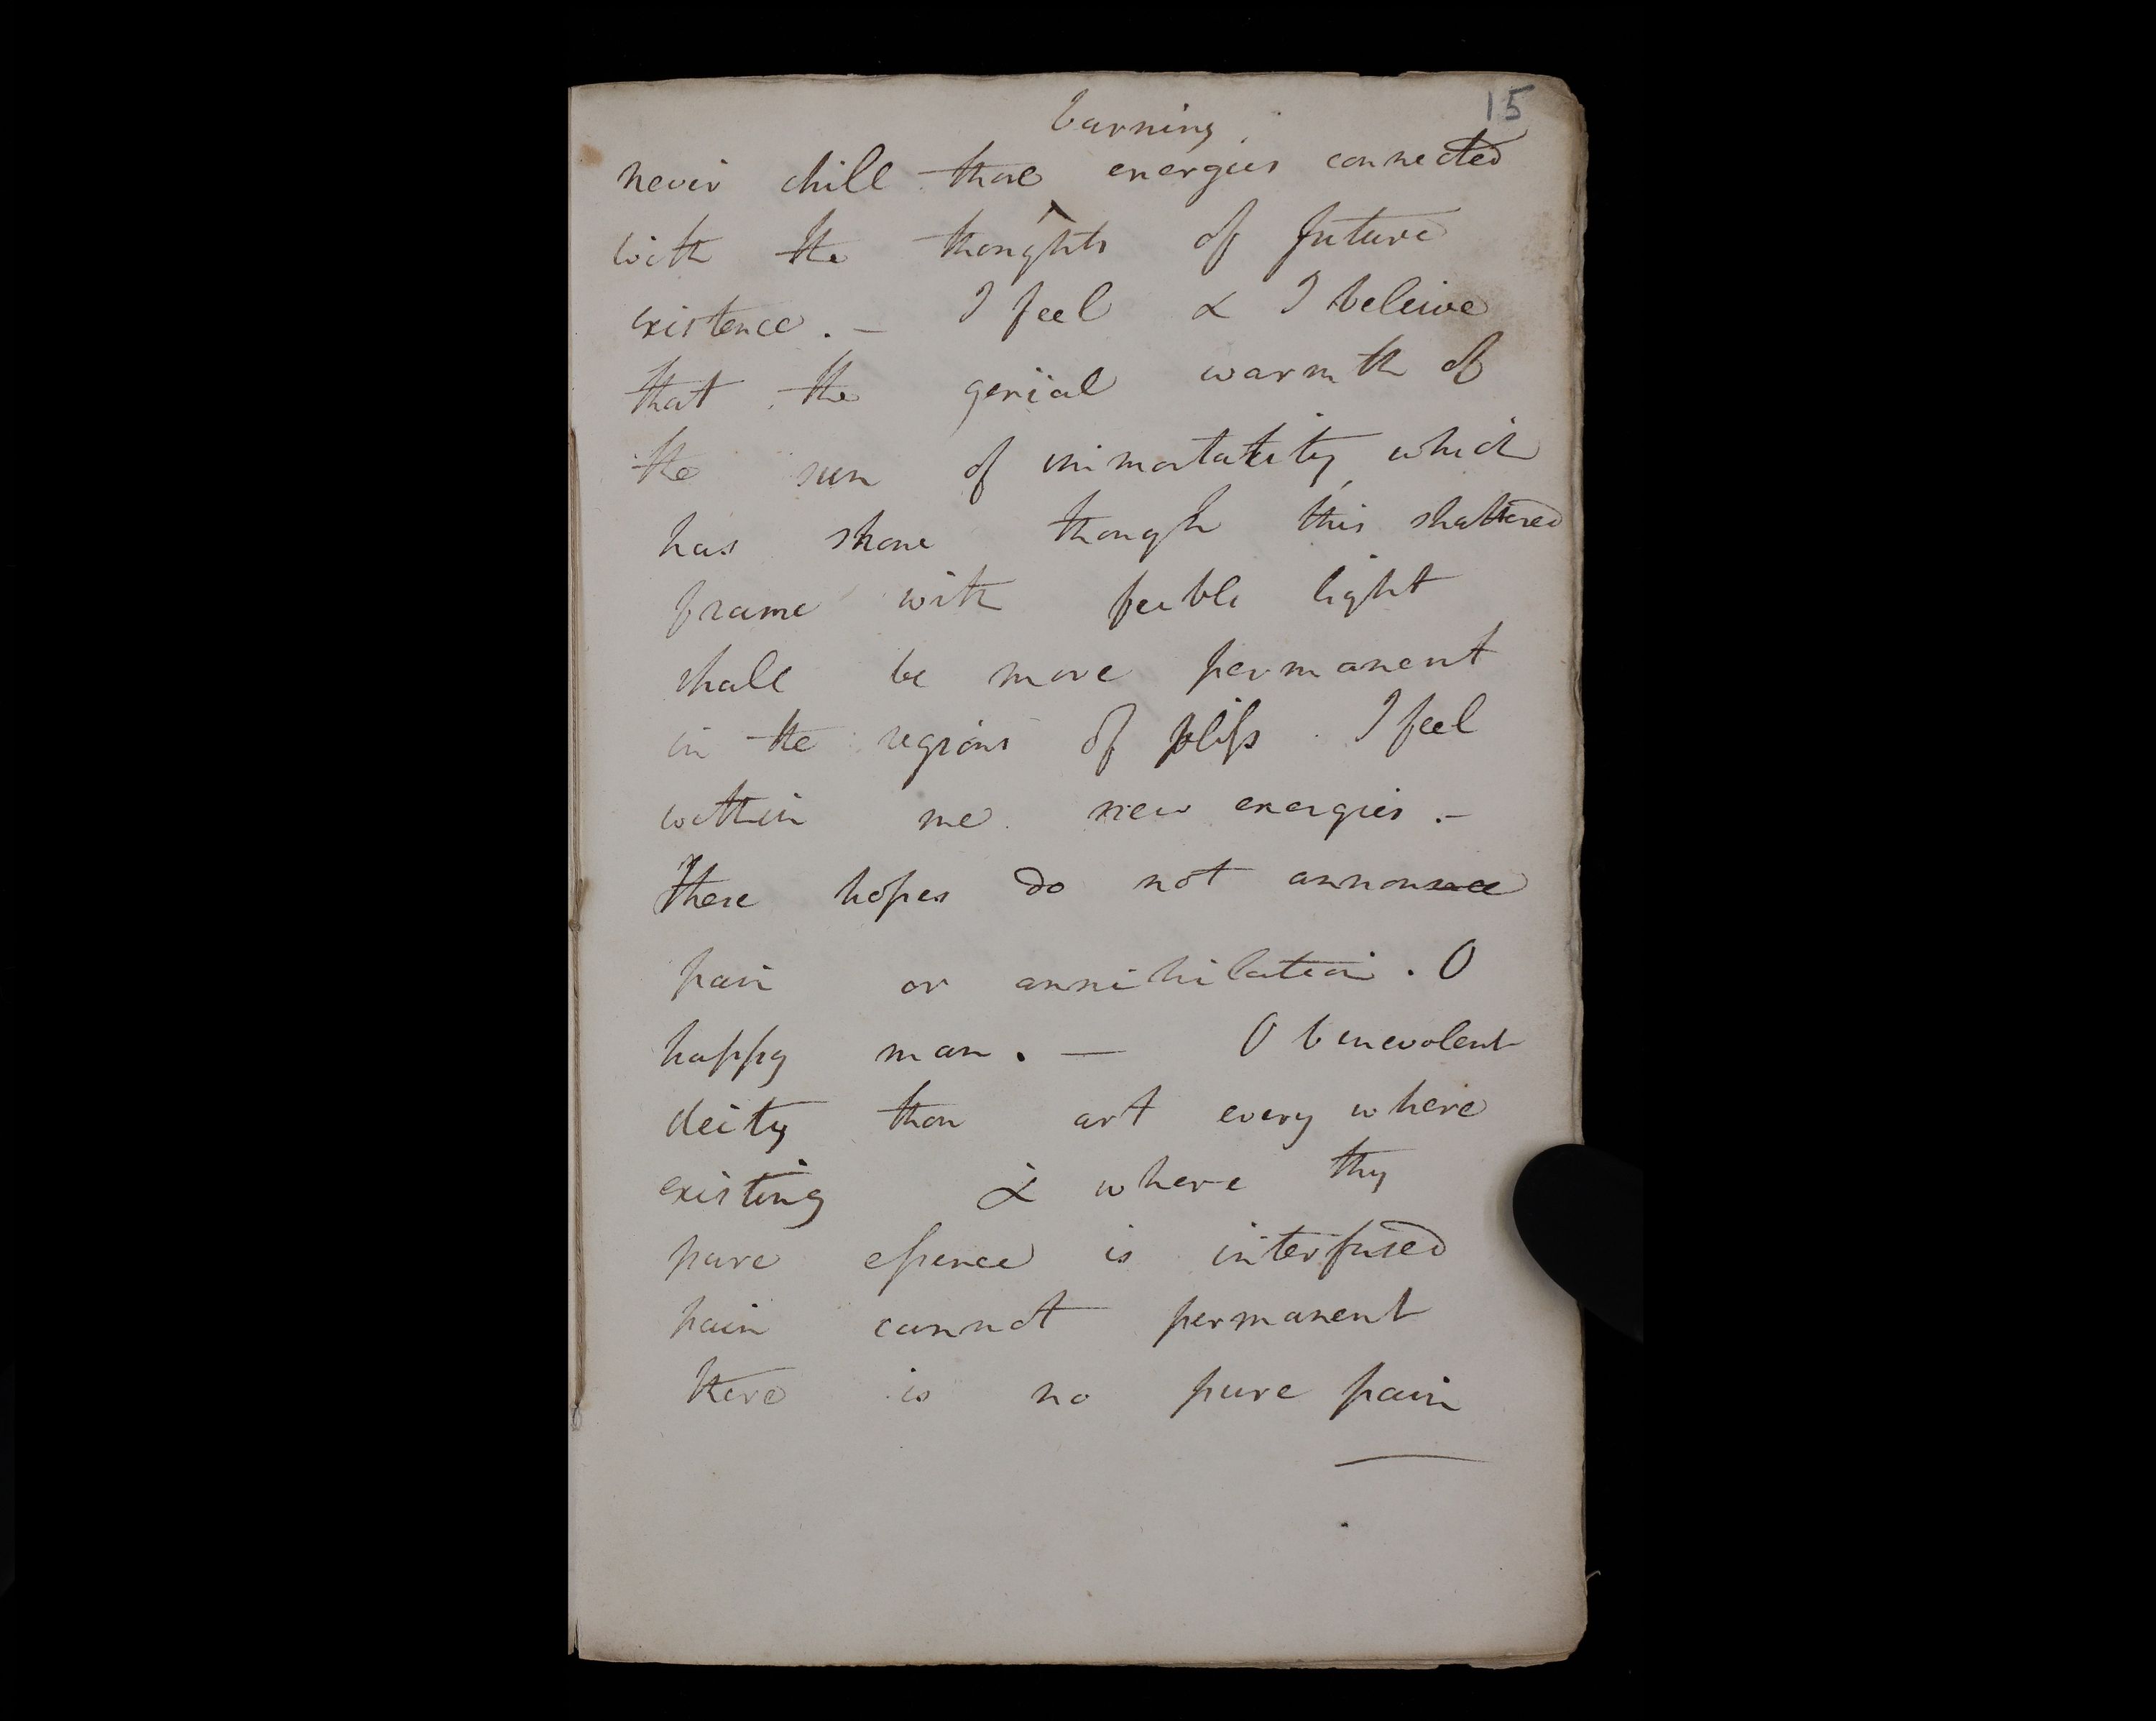 15
burning
never chill those energies connected
with the thoughts of future
existence. — I feel & I beleive
that the genial warmth of
the sun of immortality which
has shone though this shattered
frame with feeble light
shall be more permanent
in the regions of bliss. I feel
within me new energies. —
These hopes do not announce
pain or annihilation. O
happy man. — O benevolent
deity thou art every where
existing & where thy
pure essence is interfused
pain cannot permanent
there is no pure pain